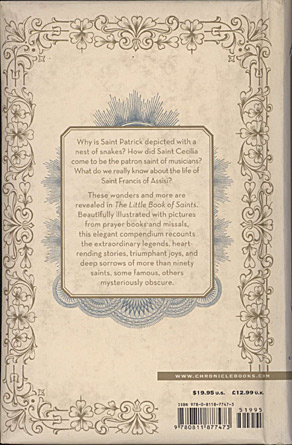 Why is Saint Patrick depicted with a
nest of snakes? How did Saint Cecilia
come to be the patron saint of musicians?
What do we really know about the life of
Saint Francis of Assisi?
These wonders and more are
revealed in The Little Book of Saints.
Beautifully illustrated with pictures
from prayer books and missals,
this elegant compendium recounts
the extraordinary legends, heart-
rending stories, triumphant joys, and
deep sorrows of more than ninety
saints, some famous, others
mysteriously obscure.
WWW.CHRONICLEBOOKS.COM
$19.95 U.S. £12.99 U.K.
ISBN 978-0-8118-7747-3
51995
9 780811 877473